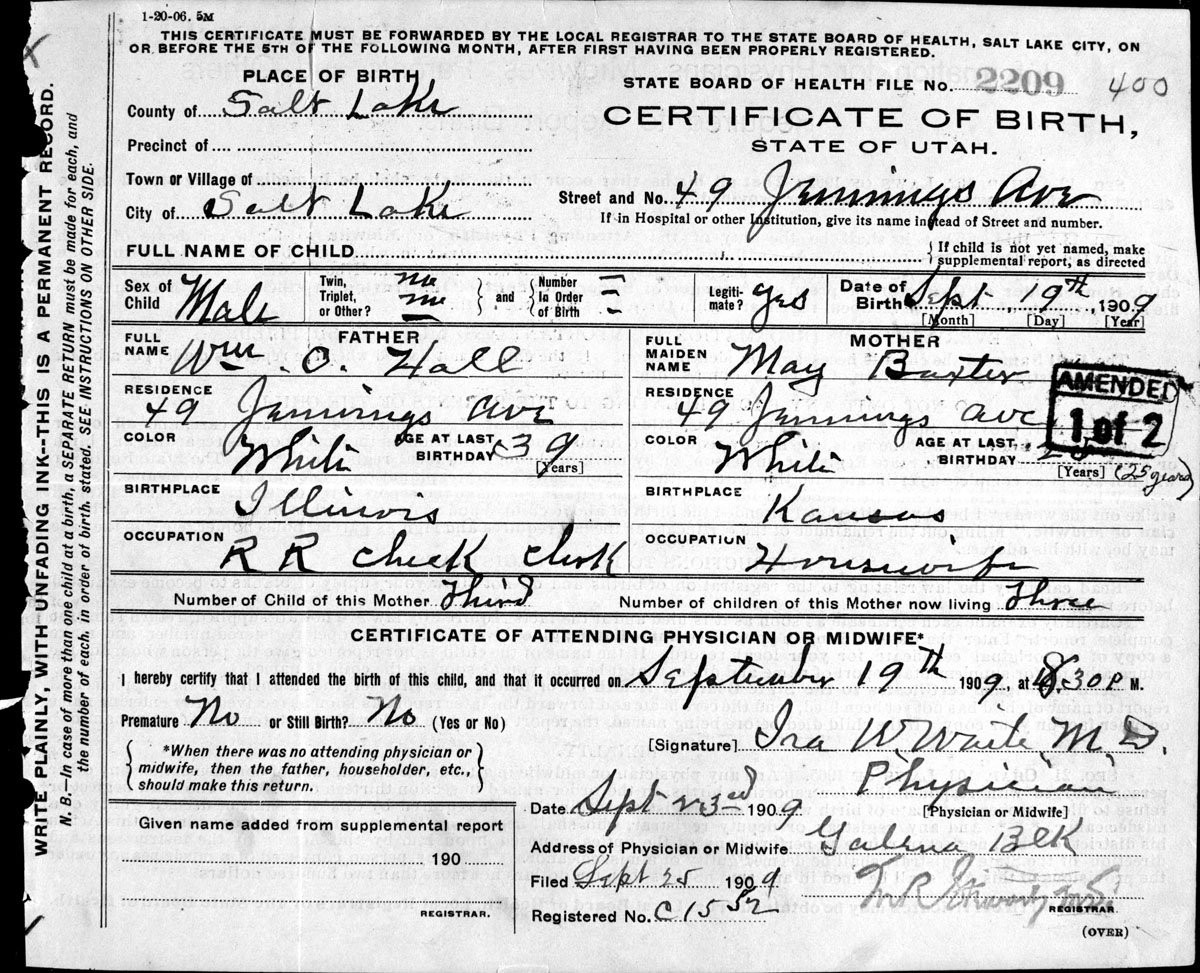 1-20-06. 5M
THIS CERTIFICATE MUST BE FORWARDED BY THE LOCAL REGISTRAR TO THE STATE BOARD OF HEALTH, SALT LAKE CITY, ON
OR BEFORE THE 5TH OF THE FOLLOWING MONTH, AFTER FIRST HAVING BEEN PROPERLY REGISTERED.
WRITE PLAINLY, WITH UNFADING INK--THIS IS A PERMANENT RECORD.
N. B.—In case of more than one child at a birth, a SEPARATE RETURN must be made for each, and
the number of each, in order of birth, stated. SEE INSTRUCTIONS ON OTHER SIDE.
PLACE OF BIRTH
County of Salt Lake
Precinct of
Town or Village of
City of Salt Lake
STATE BOARD OF HEALTH FILE No. 2209 400
CERTIFICATE OF BIRTH,
STATE OF UTAH.
Street and No. 49 Jennings Ave
If in Hospital or other Institution, give its name instead of Street and number.
FULL NAME OF CHILD
If child is not yet named, make
supplemental report, as directed
Sex of Child Male
Twin, Triplet, or Other? no no
and
Number In Order of Birth =
Legitimate? yes
Date of Birth Sept. 19th, 1909
[Month] [Day] [Year]
FATHER
FULL NAME Wm. O. Hall
RESIDENCE 49 Jennings Ave
COLOR White AGE AT LAST BIRTHDAY 39 [Years]
BIRTHPLACE Illinois
OCCUPATION R R Check Clerk
MOTHER
FULL MAIDEN NAME May Baxter
RESIDENCE 49 Jennings Ave
AMENDED
1 of 2
COLOR White AGE AT LAST BIRTHDAY [Years] (25 years)
BIRTHPLACE Kansas
OCCUPATION Housewife
Number of Child of this Mother Third
Number of children of this Mother now living Three
CERTIFICATE OF ATTENDING PHYSICIAN OR MIDWIFE*
I hereby certify that I attended the birth of this child, and that it occurred on September 19th 1909, at 8,30 P M.
Premature No or Still Birth? No (Yes or No)
*When there was no attending physician or
midwife, then the father, householder, etc.,
should make this return.
[Signature] Ira W. Waite M D.
Physician
Date Sept 23rd 1909 [Physician or Midwife]
Given name added from supplemental report
190
REGISTRAR.
Address of Physician or Midwife Galena Blk
Filed Sept 25 1909
Registered No. C 1552
REGISTRAR.
(OVER)